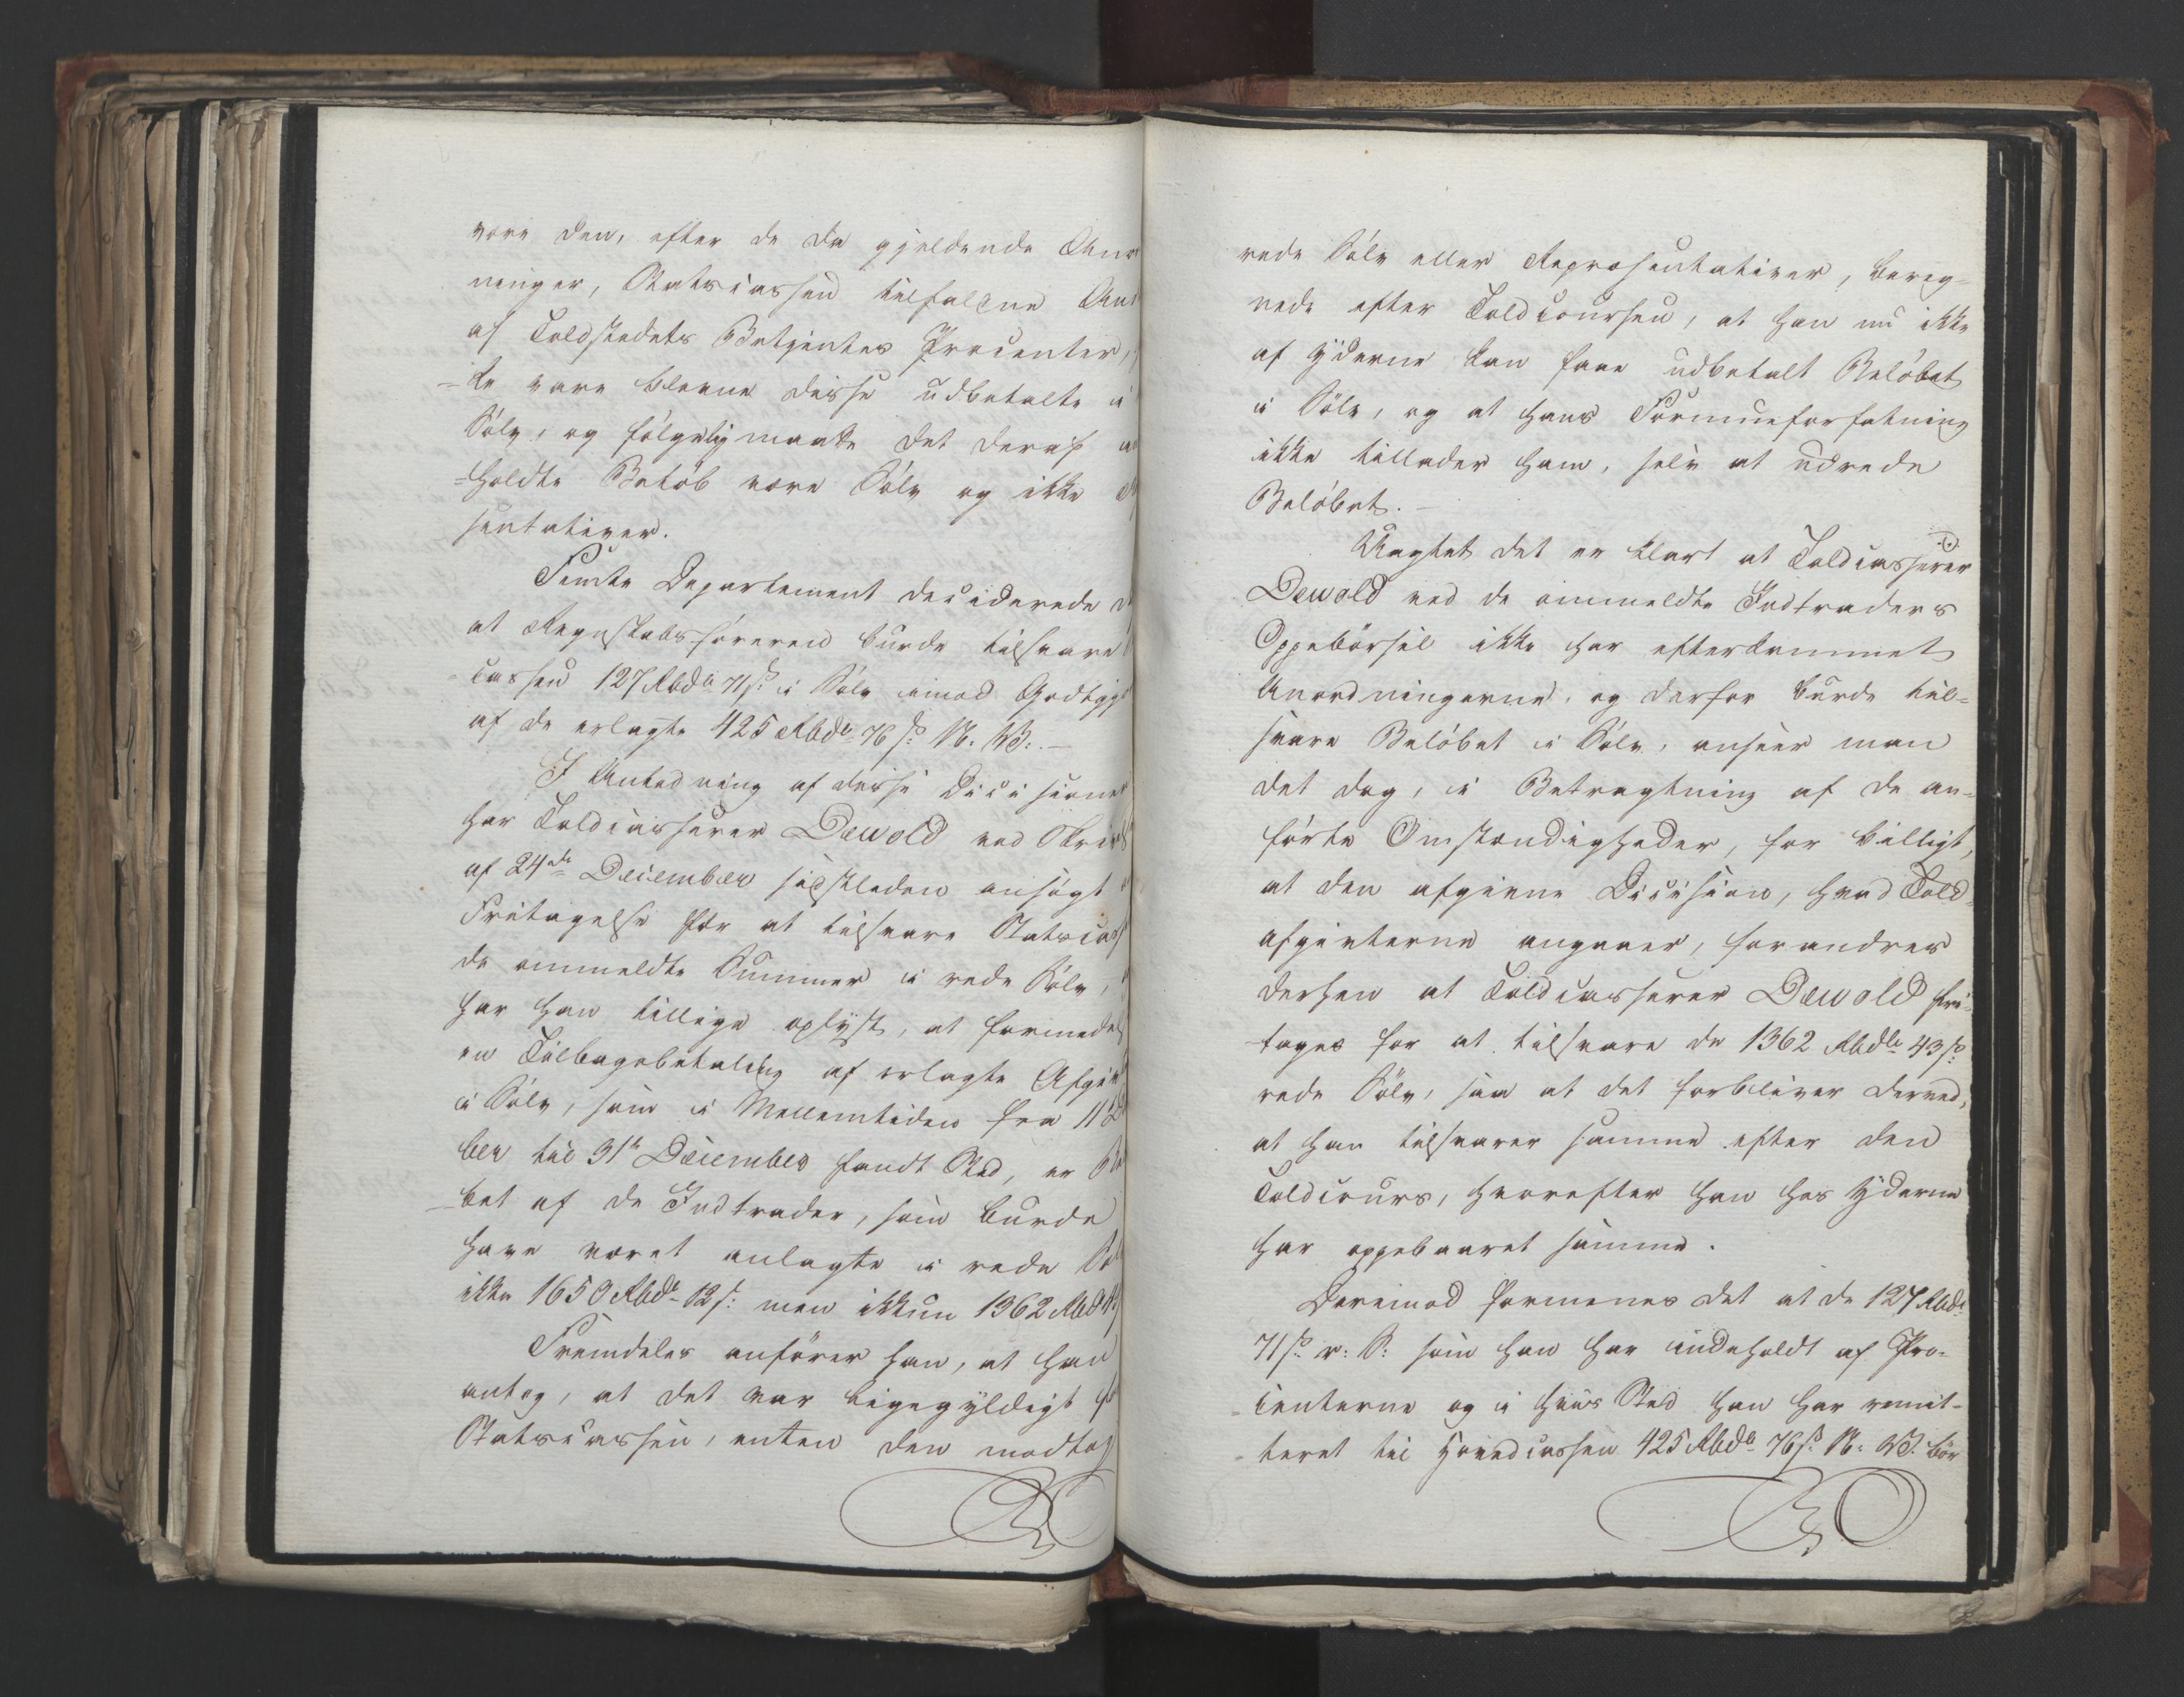 være den, efter de da gjeldende Anor
ninger, Statscassen tilfaldne An
af Toldstedets Betjentes Procenter,
-te vare blevne disse udbetalte i
Sølv, og følgelig maatte det deraf
-holdte Beløb være Sølv og ikke
sentativer.
Femte Departement deciderede
at Regnskabsføreren burde tilsvare
-cassen 127 Rbdlr 71 s: i Sølv imod Godtgj
af de erlagte 425 Rbdlr 76 s: N. V:. —
I Anledning af disse Decisioner
har Toldcasserer Dewold ved Skriv
af 24de December sidstleden ansøgt
Fritagelse for at tilsvare Statscass
de ommeldte Summer i rede Sølv,
har han tillige oplyst, at formedels
en Tilbagebetaling af erlagte Afgiv
i Sølv, som i Mellemtiden fra 11
ber til 31te December fandt Sted, er Be
-bet af de Indtrader, som burde
have været anlagte i rede Sø
ikke 1650 Rbdlr 12 s: men ikkun 1362 Rbd
Fremdeles anfører han, at han
antog, at det var ligegyldigt f
Statscassen, enten den modtog
rede Sølv eller Repræsentativer, bereg-
nede efter Toldcoursen, at han nu ikke
af Yderne kan faae udbetalt Beløbet
i Sølv, og at hans Formueforfatning
ikke tillader ham, selv at udrede
Beløbet. —
Uagtet det er klart at Toldcasserer
Dewold ved de ommeldte Indtraders
Oppebørsel ikke har efterkommet
Anordningerne, og derfor burde til-
svare Beløbet i Sølv, anseer man
det dog, i Betragtning af de an-
førte Omstændigheder, for billigt,
at den afgivne Decision, hvad Told-
afgivterne angaaer, forandres
derhen at Toldcasserer Dewold fri-
tages for at tilsvare de 1362 Rbdlr 43 s:
rede Sølv, saa at det forbliver derved,
at han tilsvarer samme efter den
Toldcours, hvorefter han hos Yderne
har oppebaaret samme.
Derimod formenes det at de 127 Rbdlr
71 s: r: S: som han har indeholdt af Pro-
-centerne og i hviis Sted han har remit-
-teret til Hovedcassen 425 Rbdlr 76 s: N: V. bør